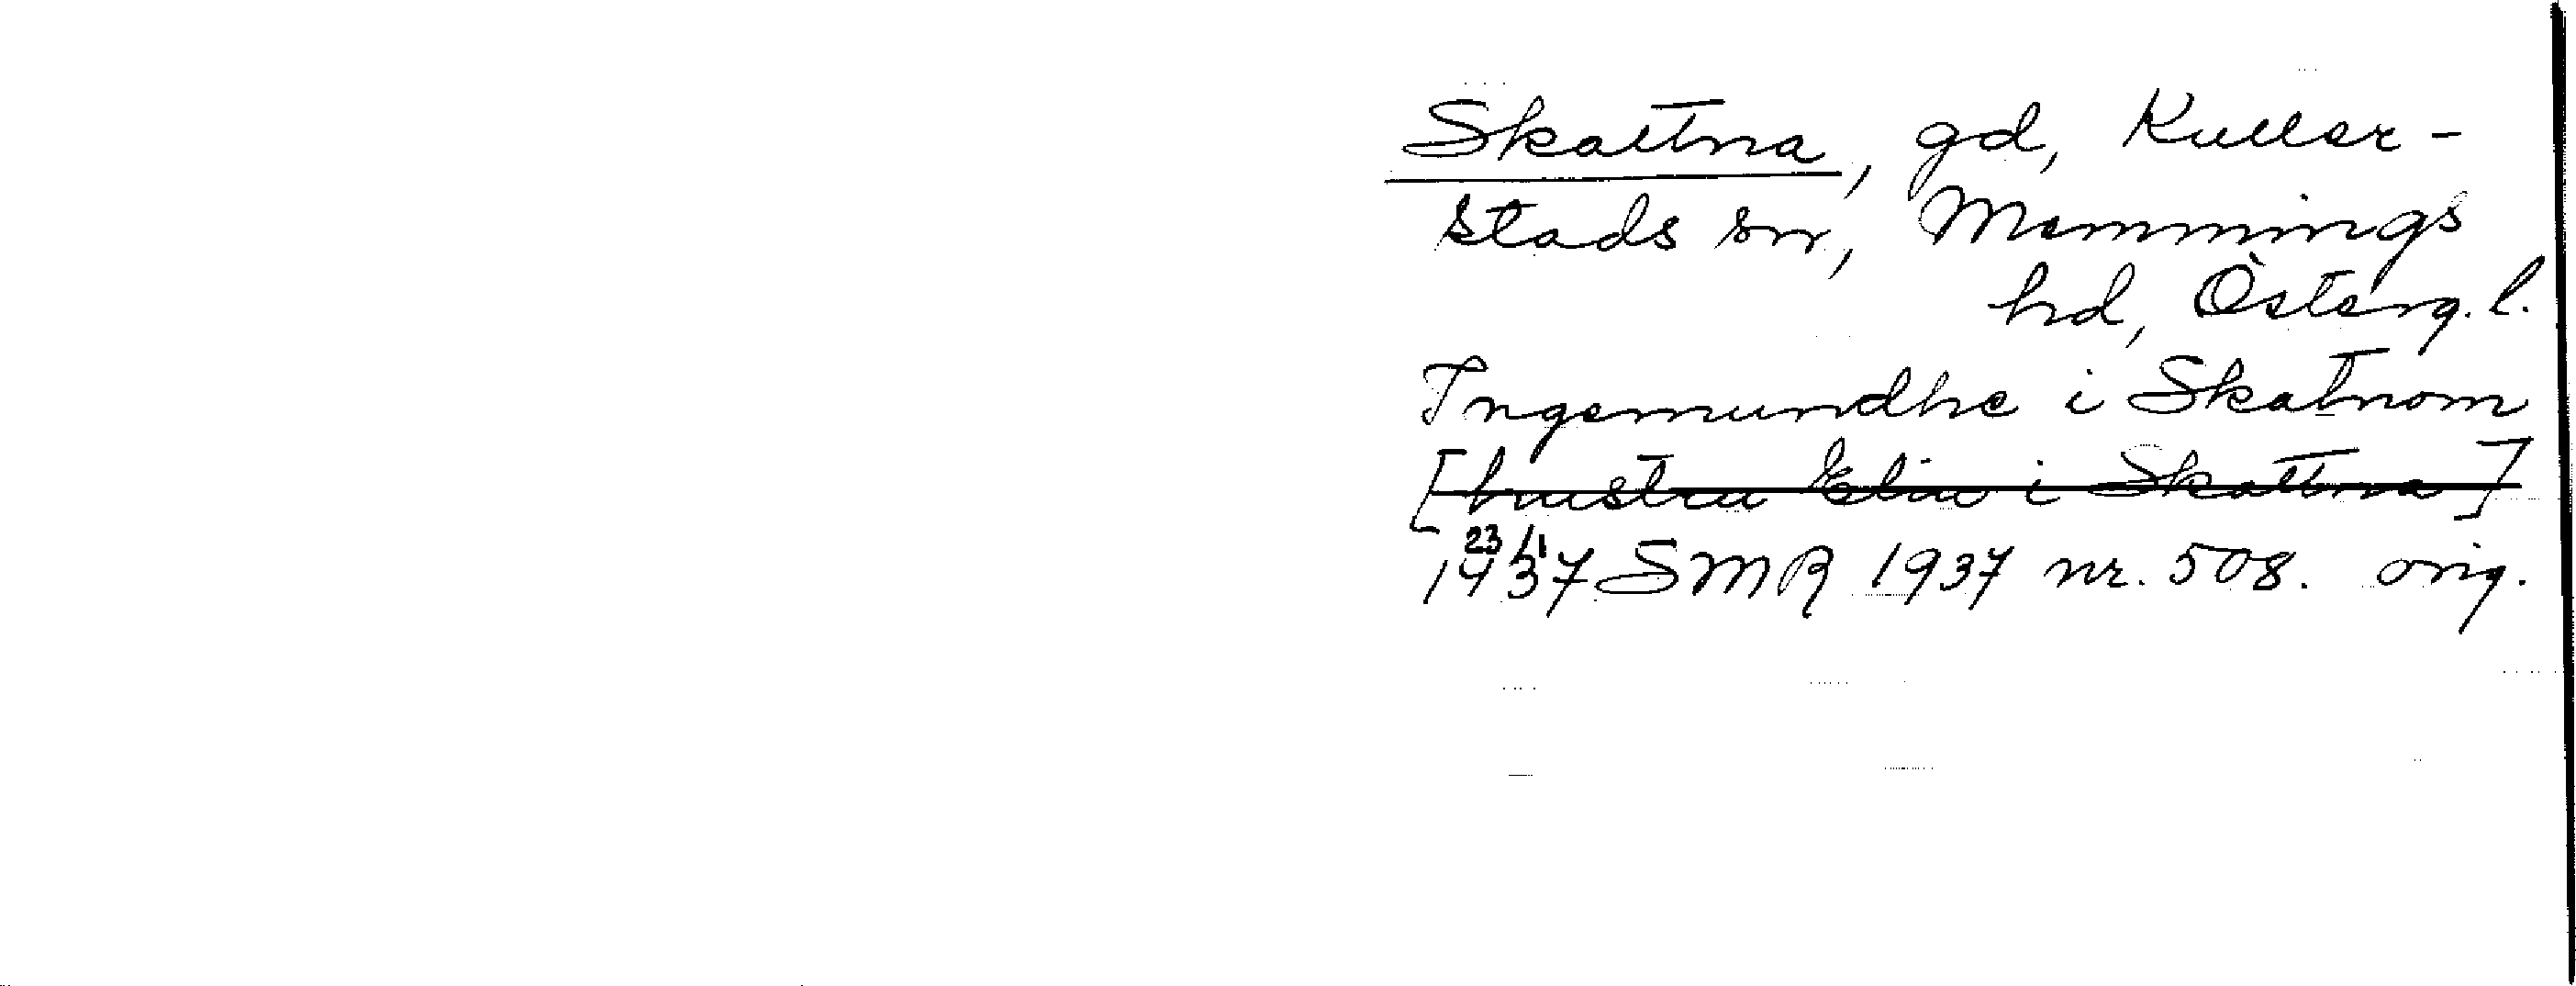 Skattna, gd, Kuller-
stads sn, Memmings
hd, Österg. l.
Ingemundhe i Skatnom
[hustru Elin i Skattna]
23/11
1437 SMR 1937 nr. 508. orig.